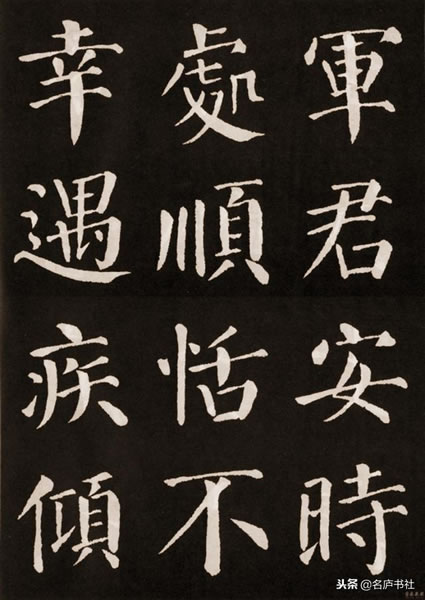 軍君安時
處順恬不
幸遇疾傾
头条@名庐书社